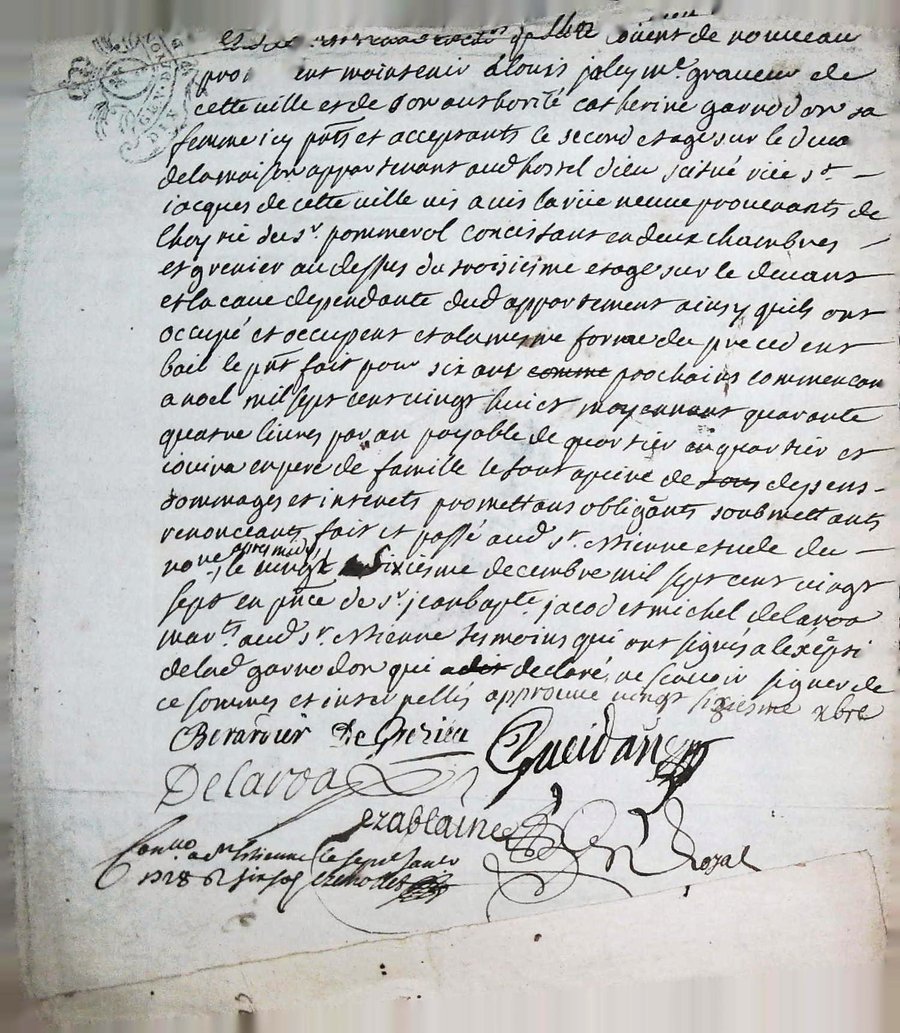 louent de nouveau
maintenir a louis jaley me. graveur de
cette ville et de son authorité catherine garnodon sa
femme icy pnts et acceptants le second etage sur le deva
de la maison appartenant aud hostel dieu scitué rüe st.
jacques de cette ville vis a vis la rüe neuve provenants de
lhoyrie du sr. pommerol concistant en deux chambres
et grenier au dessus du troisiesme etage sur le devant
et la cave dependante dud appartement ainsy quils ont
occupé et occupent et a la mesme forme du precedent
bail le pnt fait pour six ans comme prochains commencan
a noel mil sept cent vingt huict moyennant quarante
quatre livres par an payable de quartier en quartier et
jouira en pere de famille le tout a peine de tous despens
dommages et interets promettans obligants soubmettants
renonceants fait et passé aud st. estienne etude du
nore apres midy, le vingt sixiesme decembre mil sept cent vingt
sept en pnce de sr jean bapte jacod et michel delaroa
march aud st. estienne temoins qui ont signés a lexepti
de lad garnodon qui a dit declaré ne scavoir signer de
ce sommés et interpellés approuvé vingt sixiesme xbre
Gueidan
Delaroa
Rozat
Conllo. a st Estienne le sept janv
1728